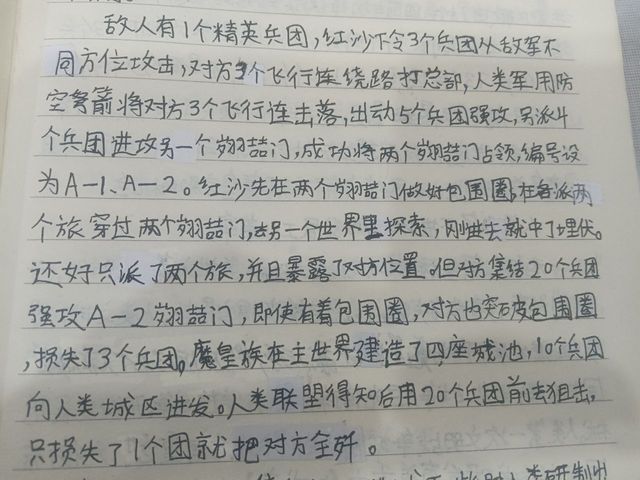 敌人有1个精英兵团,红沙下令3个兵团从敌军不
同方位攻击,对方3个飞行连绕路打总部,人类军用防
空弩箭将对方3个飞行连击落,出动5个兵团强攻,另派4
个兵团进攻另一个翙喆门,成功将两个翙喆门占领,编号设
为A-1、A-2。红沙先在两个翙喆门做好包围圈,在每派两
个旅穿过两个翙喆门,去另一个世界里探索,刚进去就中了埋伏。
还好只派了两个旅,并且暴露了对方位置。但对方集结20个兵团
强攻A-2翙喆门,即使有着包围圈,对方也突破包围圈
,损失了3个兵团。魔皇族在主世界建造了四座城池,10个兵团
向人类城区进发。人类联盟得知后用20个兵团前去狙击,
只损失了1个团就把对方全歼。